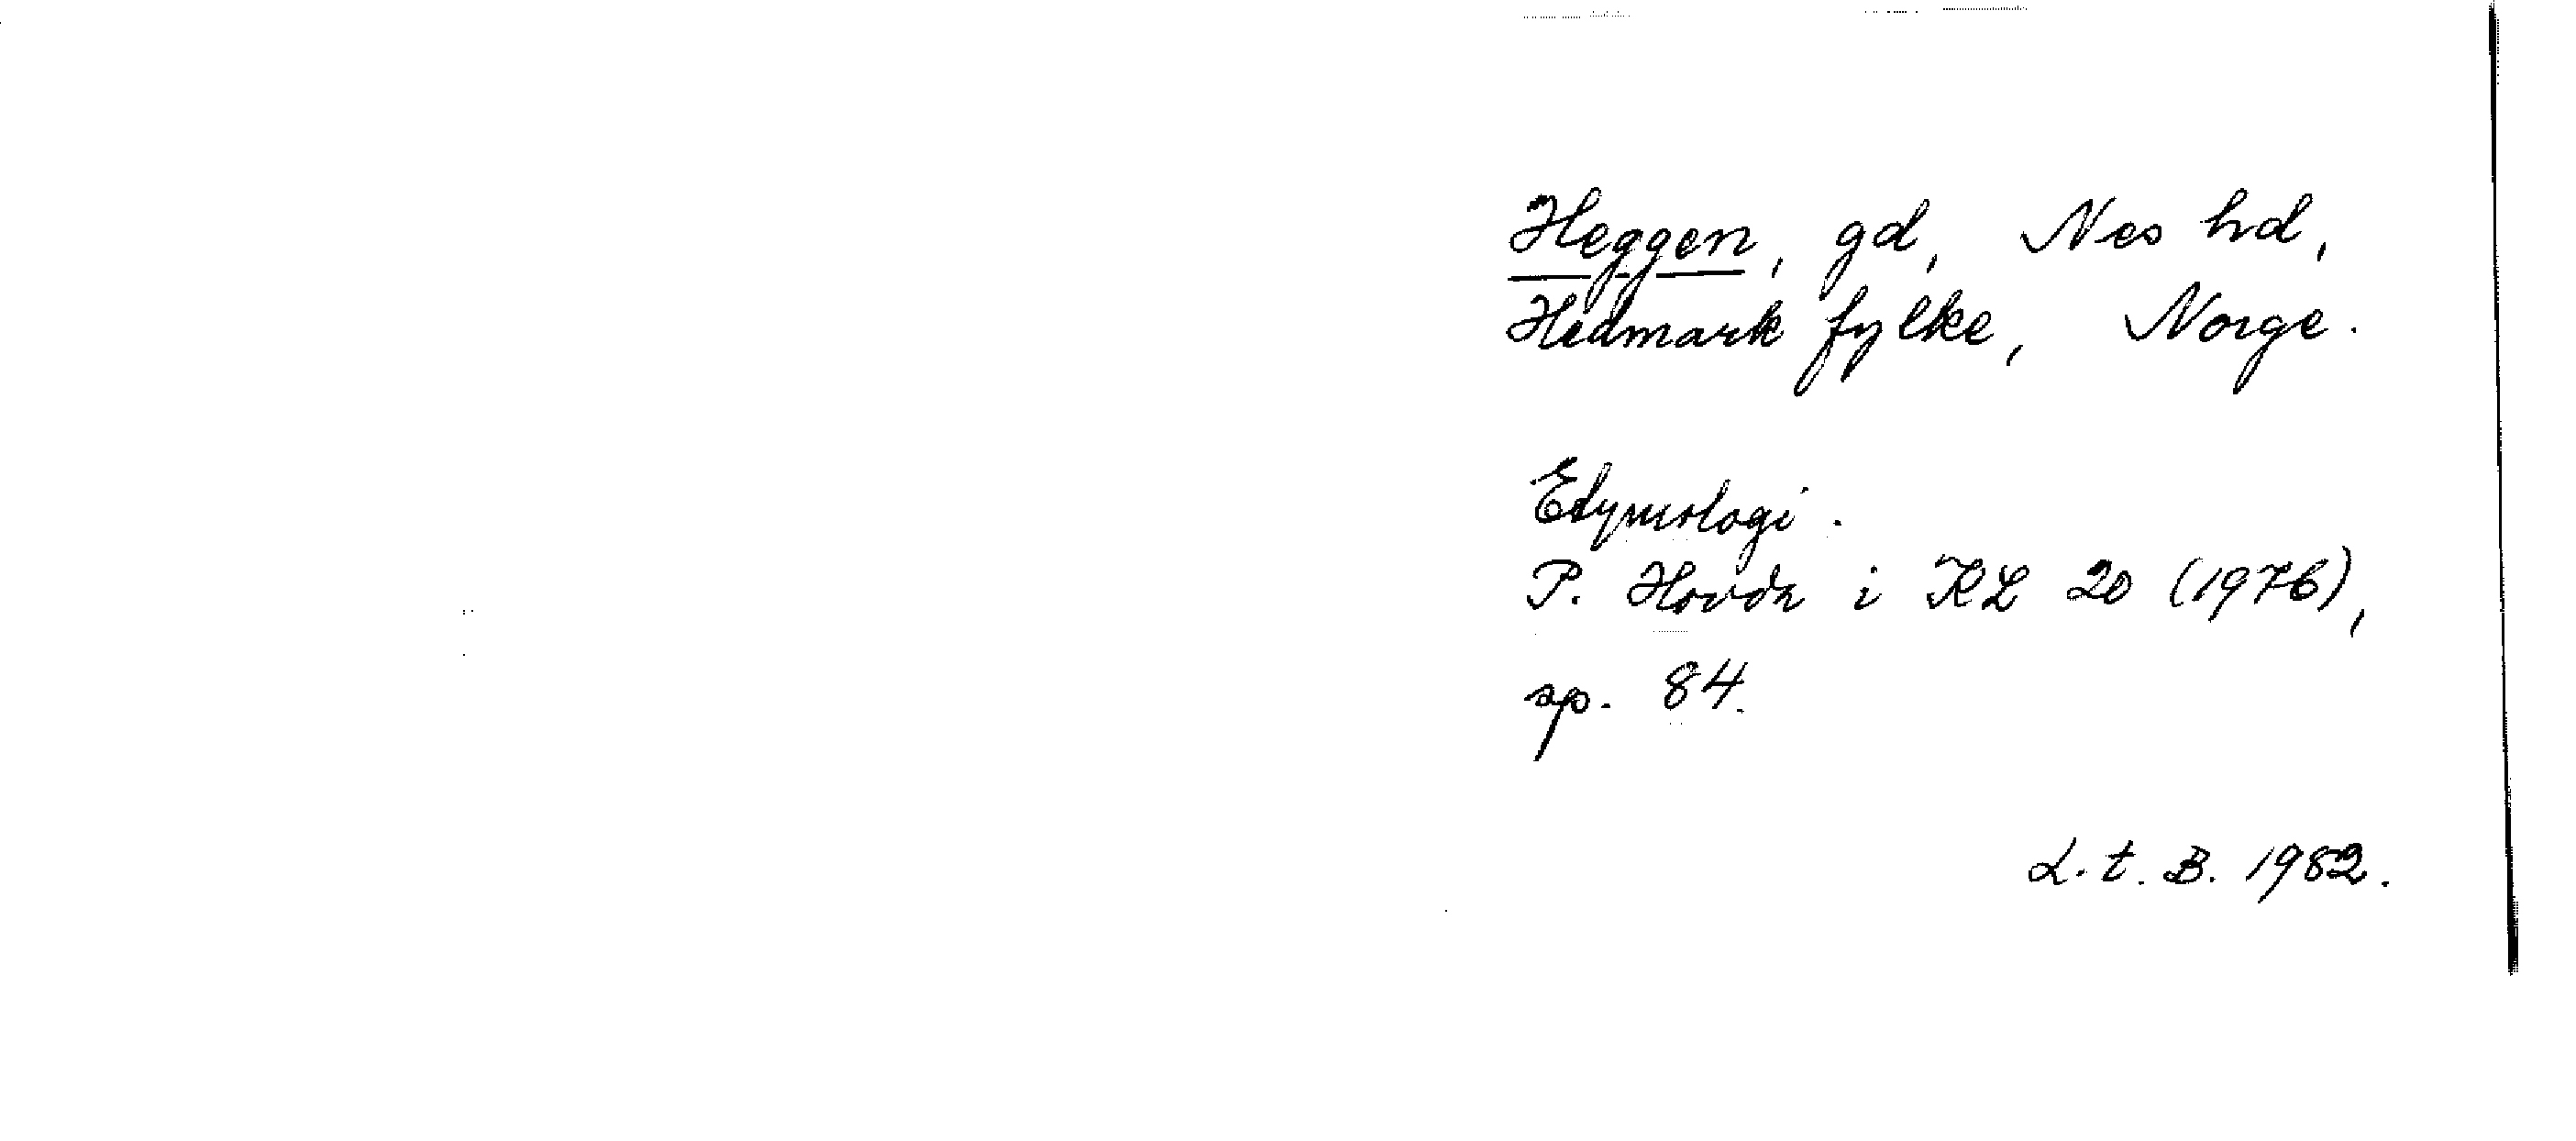 Heggen, gd, Nes hd,
Hedmark fylke, Norge.
Etymologi.
P. Hovda i KL 20 (1976),
sp. 84.
L. t. B. 1982.